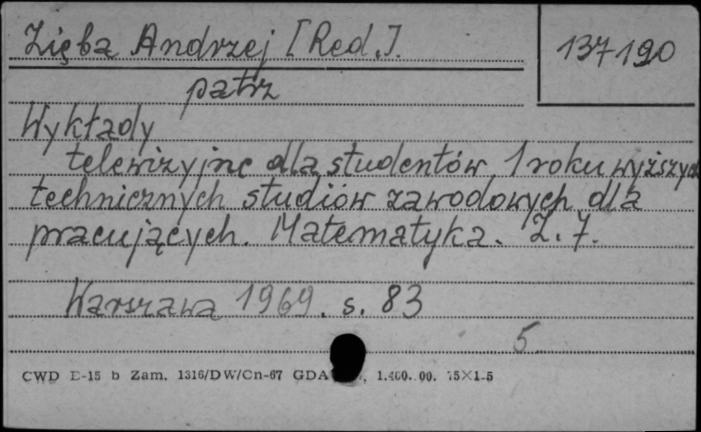 Zięba Andrzej [Red.].
137190
patrz
Wykłady
telewizyjne dla studentów 1 roku wyższych
technicznych studiów zawodowych dla
pracujących. Matematyka. Z. 7.
Warszawa 1969. s. 83
5
CWD E-15 b Zam. 1316/DW/Cn-67 GDA